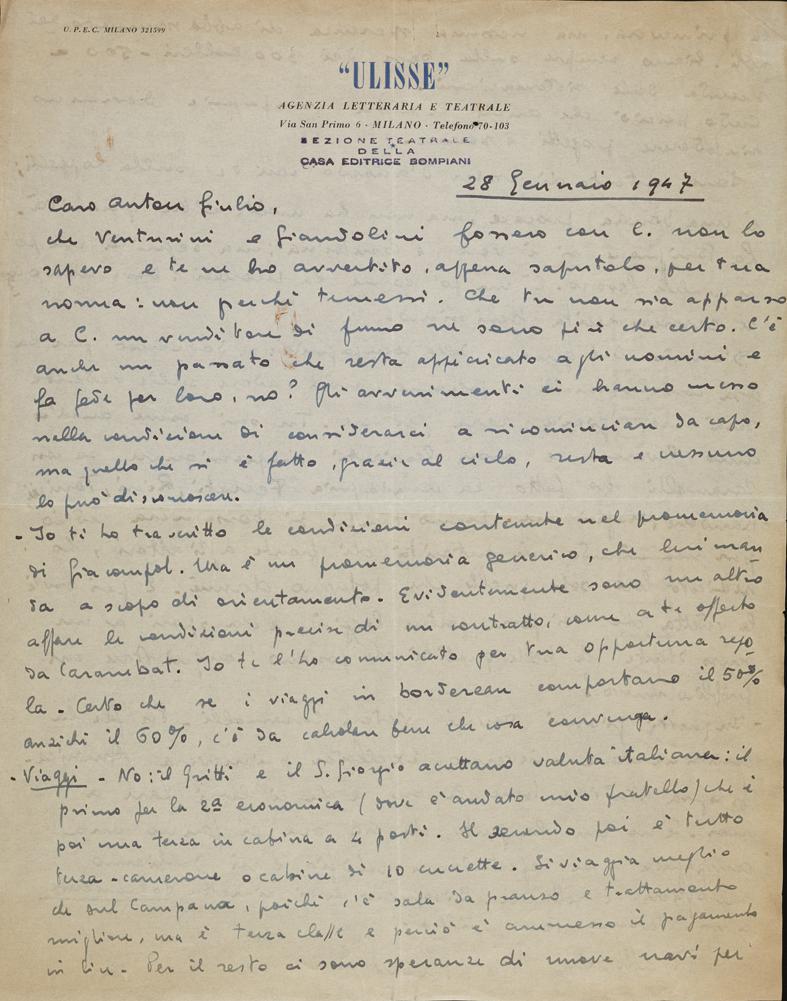 U.P.E.C. MILANO 321599
"ULISSE"
AGENZIA LETTERARIA E TEATRALE
Via San Primo 6 - MILANO - Telefono 70-103
SEZIONE TEATRALE
DELLA
CASA EDITRICE BOMPIANI
28 Gennaio 1947
Caro Anton Giulio,
che Venturini e Giandolini fossero con C. non lo
sapevo e te ne ho avvertito, appena saputolo, per tua
norma: non perché temessi. Che tu non sia apparso
a C. un venditore di fumo ne sono più che certo. C'è
anche un passato che resta appiccicato agli uomini e
fa fede per loro, no? Gli avvenimenti ci hanno messo
nella condizione di considerarci a ricominciare da capo,
ma quello che si è fatto, grazie al cielo, resta e nessuno
lo può disconoscere.
- Io ti ho trascritto le condizioni contenute nel promemoria
di Giacompol. Ma è un promemoria generico, che lui man
da a scopo di orientamento. Evidentemente sono un altro
affare le condizioni precise di un contratto, come a te offerto
da Carambat. Io te l'ho comunicato per tua opportuna rego
la - Certo che se i viaggi in bordereau comportano il 50%
anziché il 60%, c'è da calcolare bene che cosa convenga.
- Viaggi - No: il Gritti e il S. Giorgio accettano valuta italiana: il
primo per la 2a economica (dove è andato mio fratello) che è
poi una terza in cabina a 4 posti. Il secondo poi è tutto
terza - camerone o cabine di 10 cuccette. Si viaggia meglio
che sul Campana, poiché c'è sala da pranzo e trattamento
migliore, ma è terza classe e perciò è ammesso il pagamento
in lire. Per il resto ci sono speranze di nuove navi per